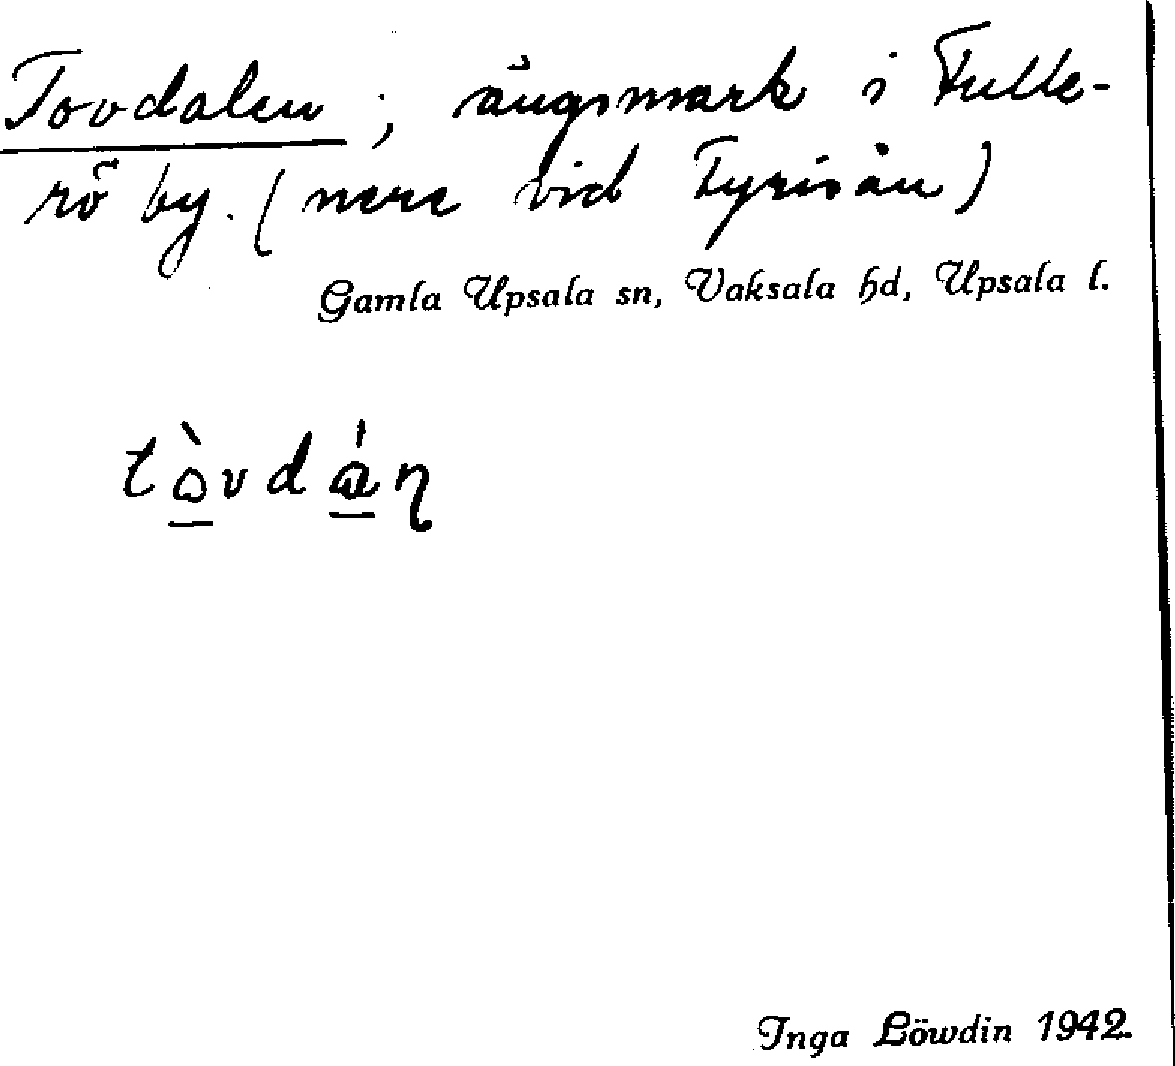 Tovdalen; ängsmark i Fulle-
rö by. (nere vid Fyrisån)
Gamla Upsala sn, Vaksala hd, Upsala l.
tò̱vdá̱n
Inga Löwdin 1942.